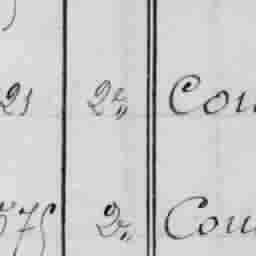 21 2e Cou
575 2e Cou